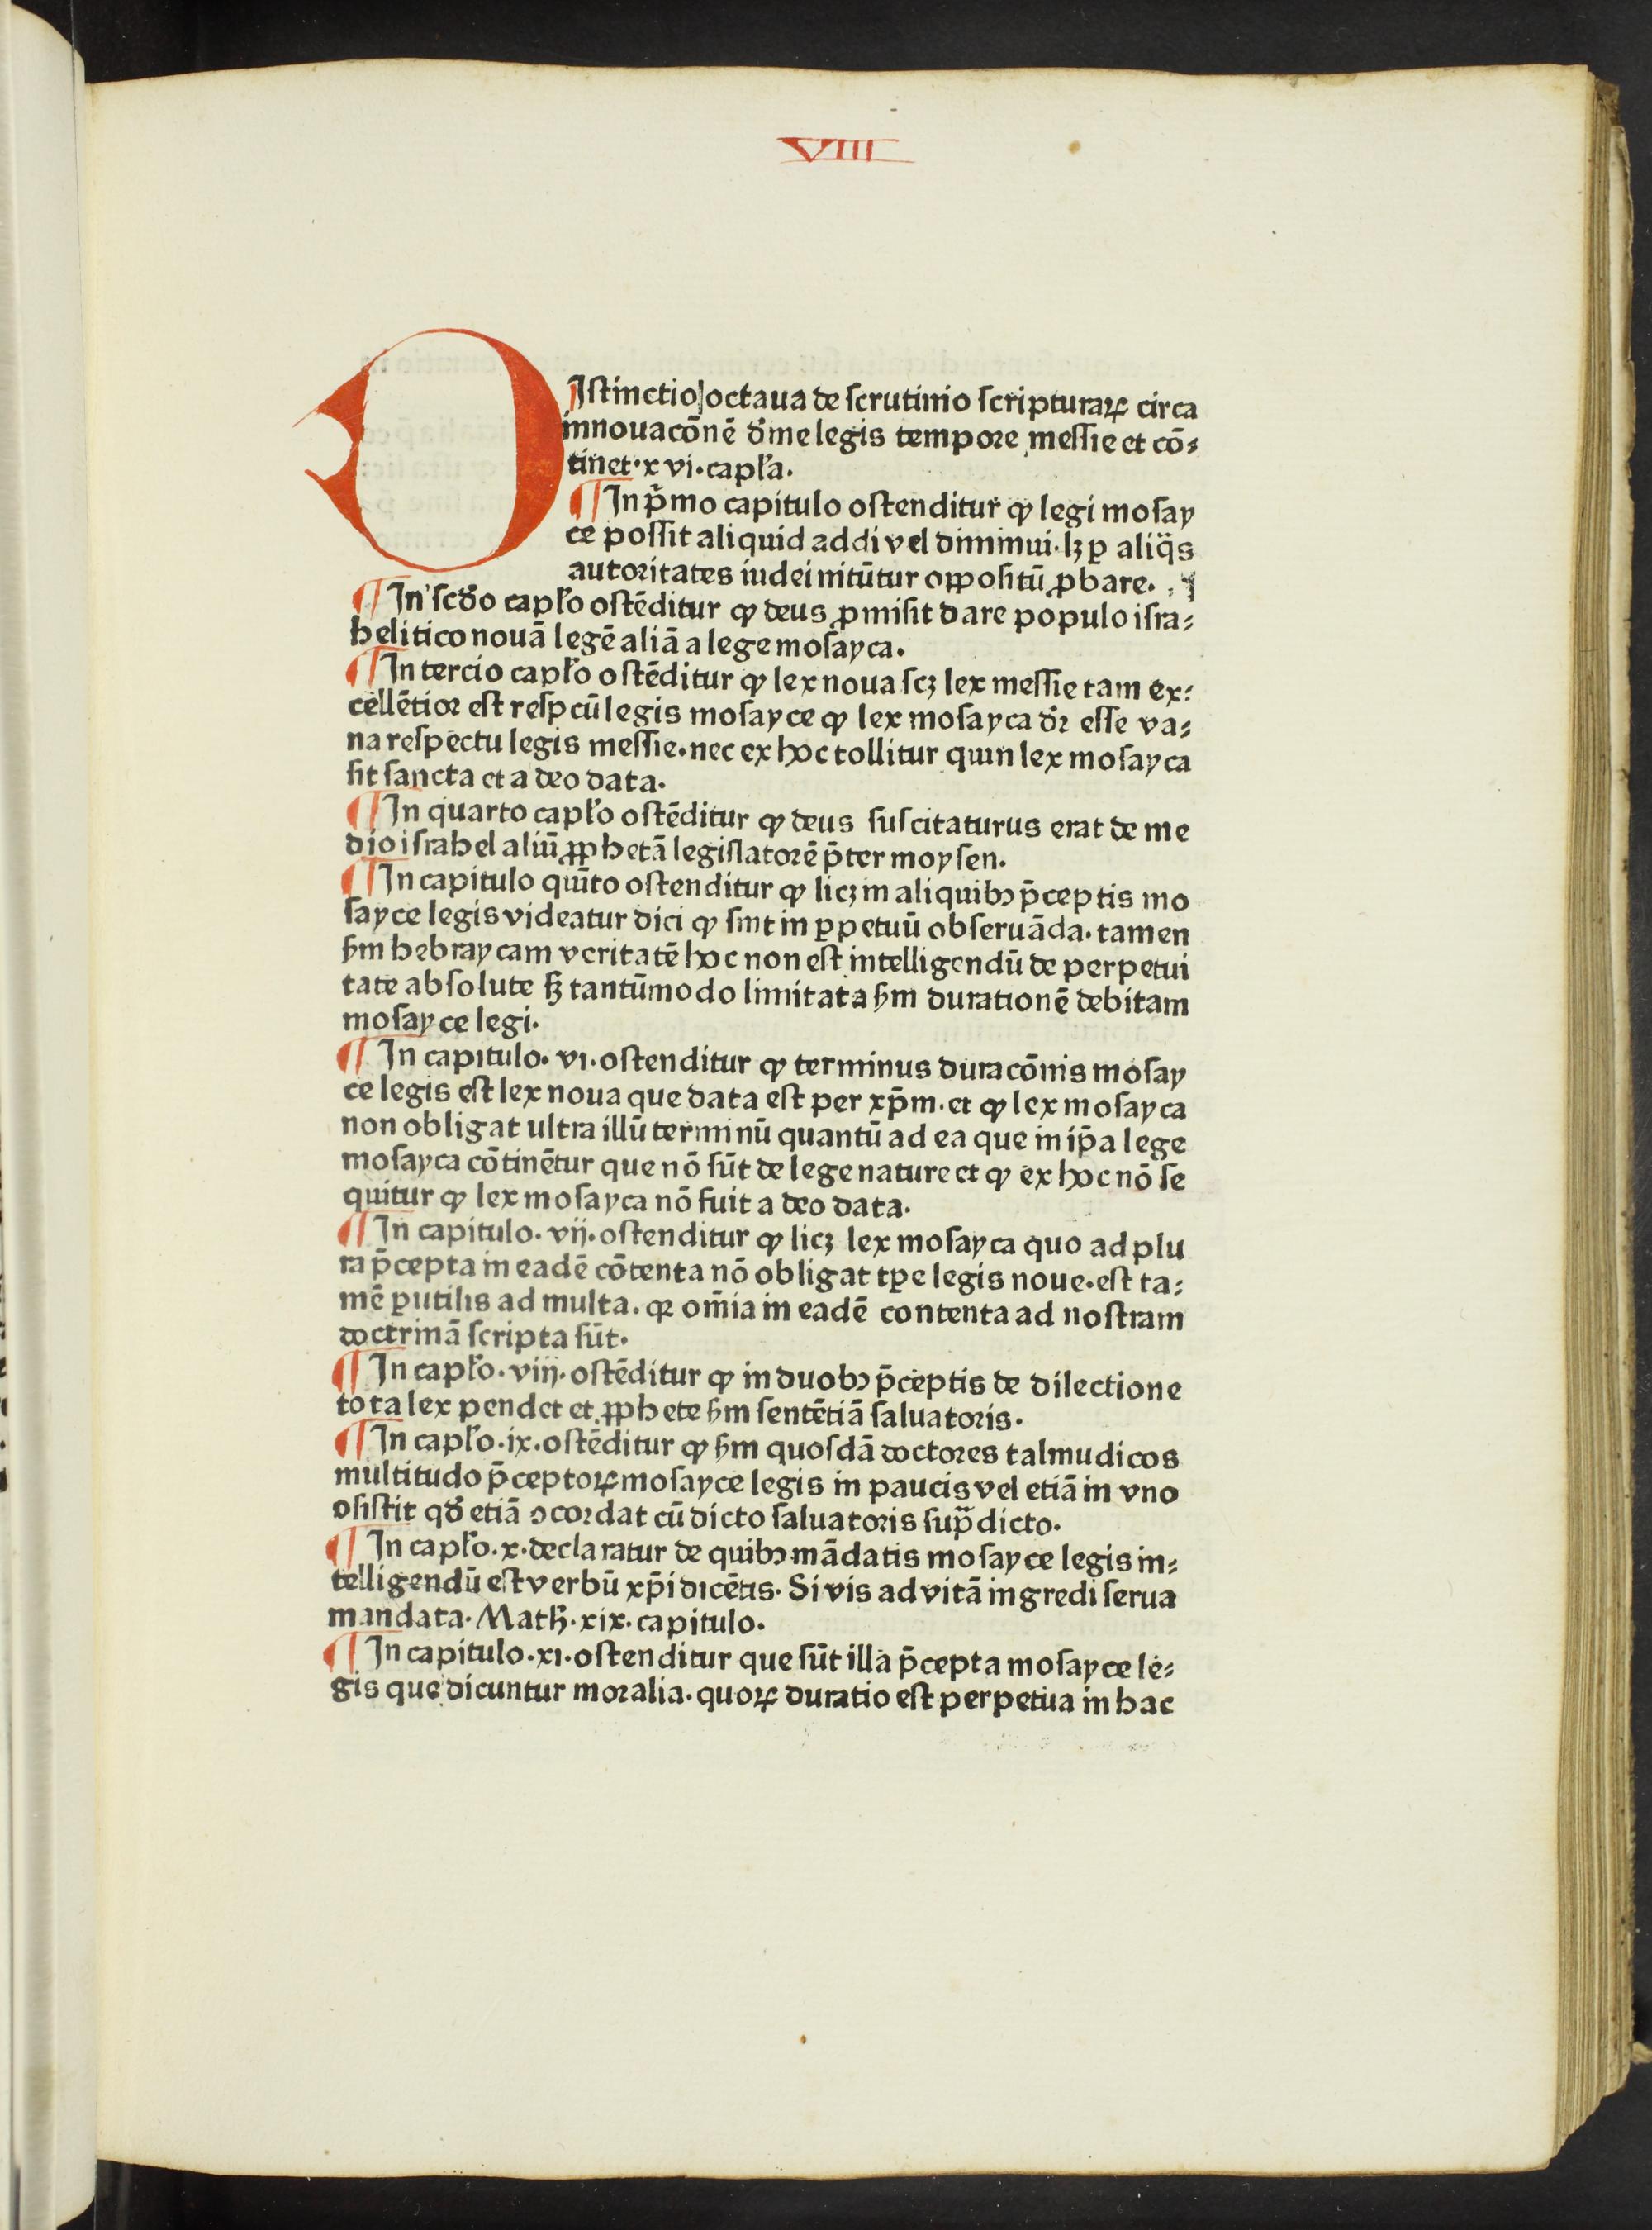 VIII
DIstinctio octaua de scrutinio scripturaꝝ circa
innouacōnē diuīe legis tempore messie et cō⸗
tinet· xvi· capl'a.
¶ In pͥmo capitulo ostenditur ꝙ legi mosay
ce possit aliquid addi vel diminui· lꝫ ꝑ aliq̄s
autoritates iudei nitūtur oppositū ꝓbare.
¶ In scd'o capl'o ostēditur ꝙ deus ꝓmisit dare populo isra⸗
helitico nouā legē aliā a lege mosayca.
¶ In tercio capl'o ostēditur ꝙ lex noua scꝫ lex messie tam ex⸗
cellētior est respcū legis mosayce ꝙ lex mosayca dr̄ esse va⸗
na respectu legis messie. nec ex hoc tollitur quin lex mosayca
sit sancta et a deo data.
¶ In quarto capl'o ostēditur ꝙ deus suscitaturus erat de me
dio israhel aliū ꝓphetā legislatorē p̄ter moysen.
¶ In capitulo quīto ostenditur ꝙ licꝫ in aliquibꝰ p̄ceptis mo
sayce legis videatur dici ꝙ sint in ꝑpetuū obseruāda. tamen
ẜm hebraycam veritatē hoc non est intelligendū de perpetui
tate absolute sꝫ tantūmodo limitata ẜm durationē debitam
mosayce legi.
¶ In capitulo· vi· ostenditur ꝙ terminus duracōnis mosay
ce legis est lex noua que data est per xp̄m. et ꝙ lex mosayca
non obligat ultra illū terminū quantū ad ea que in ip̄a lege
mosayca cōtinētur que nō sūt de lege nature et ꝙ ex hoc nō se
quitur ꝙ lex mosayca nō fuit a deo data.
¶ In capitulo· vij· ostenditur ꝙ licꝫ lex mosayca quo ad plu
ra p̄cepta in eadē cōtenta nō obligat tꝑe legis noue. est ta⸗
mē ꝑutilis ad multa. qꝛ om̄ia in eadē contenta ad nostram
doctrinā scripta sūt.
¶ In capl'o· viij· ostēditur ꝙ in duobꝰ p̄ceptis de dilectione
tota lex pendet et ꝓphete ẜm sentētiā saluatoris.
¶ In capl'o· ix· ostēditur ꝙ ẜm quosdā doctores talmudicos
multitudo p̄ceptoꝝ mosayce legis in paucis vel etiā in vno
ꝯsistit qd' etiā ꝯcordat cū dicto saluatoris sup̄dicto.
¶ In capl'o· x· declaratur de quibꝰ mādatis mosayce legis in⸗
telligendū est verbū xp̄i dicētis· Si vis ad vitā ingredi serua
mandata· Matħ· xix· capitulo.
¶ In capitulo· xi· ostenditur que sūt illa p̄cepta mosayce le⸗
gis que dicuntur moralia. quoꝝ duratio est perpetua in hac